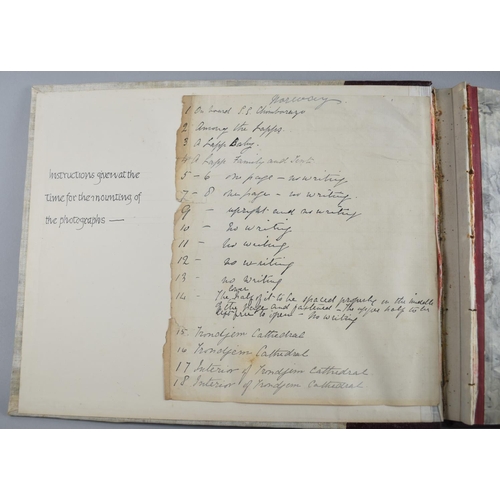 Instructions given at the
Time for the mounting of
the photographs —
Norway
1 On board S.S Chimborazo
2 Among the Lapps.
3 A Lapp Baby.
4 A Lapp Family and Tent
5 - 6 one page - no writing
7 - 8 one page - no writing
9 - upright and no writing
10 - No writing
11 - No writing
12 - no writing
13 - no writing
lower
14 - The half of it to be spaced properly in the middle
of the page and fastened - The upper half to be
kept free to open - No writing
15 Trondjem Cathedral
16 Trondjem Cathedral
17 Interior of Trondjem Cathedral
18 Interior of Trondjem Cathedral